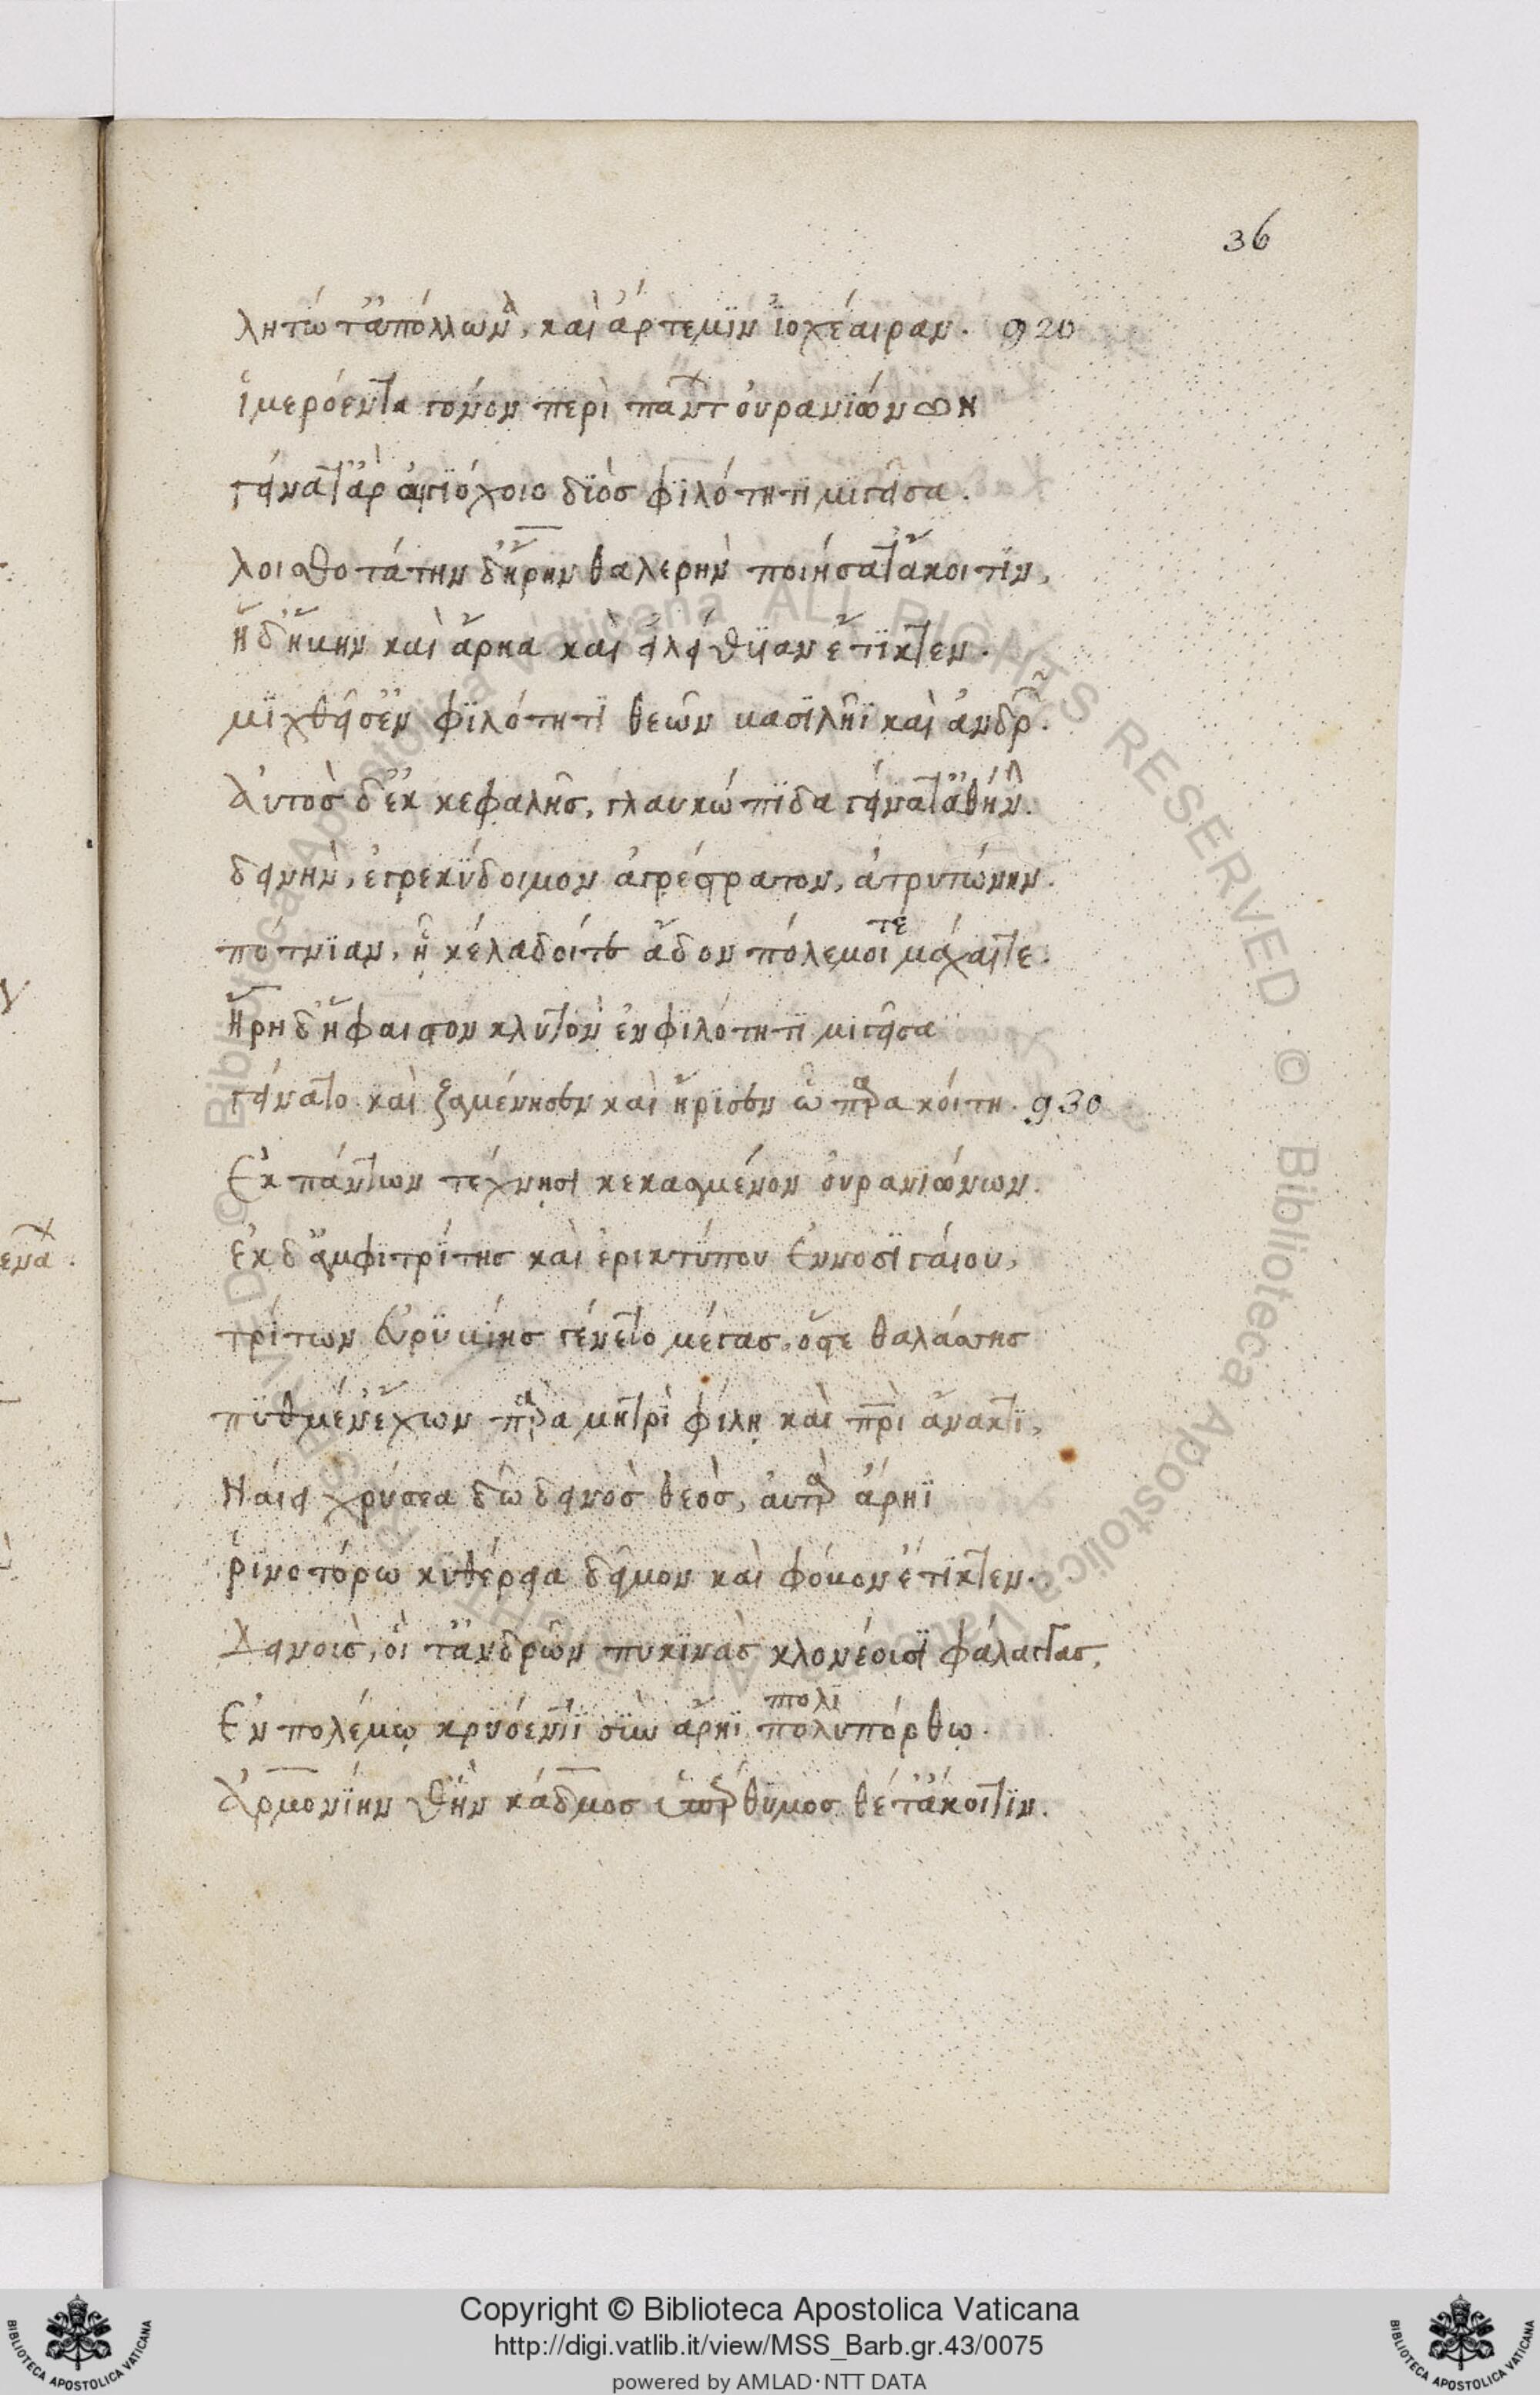 36
λητώ τ' ἀπόλλωνα, καὶ ἄρτεμϊν ἰοχέαιραν. 920
ἱμερόεντα γόνον περὶ πάντων οὐρανϊώνων
γείνατ' ἄρ αἰγϊόχοιο δϊὸσ φϊλότητϊ μιγεῖσα.
λοισθοτάτην δ' ἥρην θαλερὴν ποιήσατ' ἄκοιτϊν,
ἡ δ' ἥβην καὶ ἄρηα καὶ εἰλείθϋιαν ἔτϊκτεν.
μϊχθεῖσ' ἐν φϊλότητϊ θεῶν βασϊλῆϊ καὶ ἀνδρῶν.
Αὐτὸσ δ' ἐκ κεφαλῆσ, γλαυκώπϊδα γείνατ' ἀθήνην.
δεινὴν, ἐγρεκϋδοιμον ἀγρέστρατον, ἀτρυτώνην.
ποτνϊαν, ἧ κέλαδοίτε ἅδον πόλεμοί τε μάχαιτε.
Ἥρη δ' ἥφαιστον κλυτὸν ἐν φϊλότητϊ μιγεῖσα
γείνατο καὶ ζαμένησεν καὶ ἤρϊσεν ὧ παρακοίτη. 930
Ἐκ πάντων τέχνησι κεκασμένον οὐρανϊώνων.
ἐκ δ' ἀμφϊτρίτησ καὶ ἐρικτϋπου ἐννοσϊγαίου,
τρίτων εὐρϋβίησ γένετο μέγασ, ὅστε θαλάσσησ
πϋθμέν' ἔχων παρὰ μητρὶ φίλῃ καὶ πατρὶ ἄνακτϊ,
Ναίει χρύσεα δῶ δεινὸσ θεὸσ, αὐτὰρ ἄρηϊ
ῥϊνοτόρω κυθέρεια δεῖμον καὶ φόβον ἔτϊκτεν.
Δεινοὶσ, οἵ τ' ἀνδρῶν πυκϊνὰσ κλονέουσϊ φάλαγγασ,
Ἐν πολέμῳ κρϋόεντϊ σὺν ἄρηϊ πολυπόρθῳ.
πολϊ
Ἁρμονϊην θ' ἣν κάδμοσ ὑπέρθϋμοσ θέτ' ἄκοιτϊν.
Copyright © Biblioteca Apostolica Vaticana
http://digi.vatlib.it/view/MSS_Barb.gr.43/0075
powered by AMLAD·NTT DATA